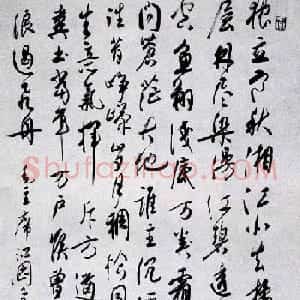 独立寒秋湘江北去橘
层林尽染漫江碧透
空鱼翔浅底万类霜
问苍茫大地谁主沉
往昔峥嵘岁月稠恰同
生意气挥斥方遒
粪土当年万户侯曾
浪遏飞舟 毛主席词